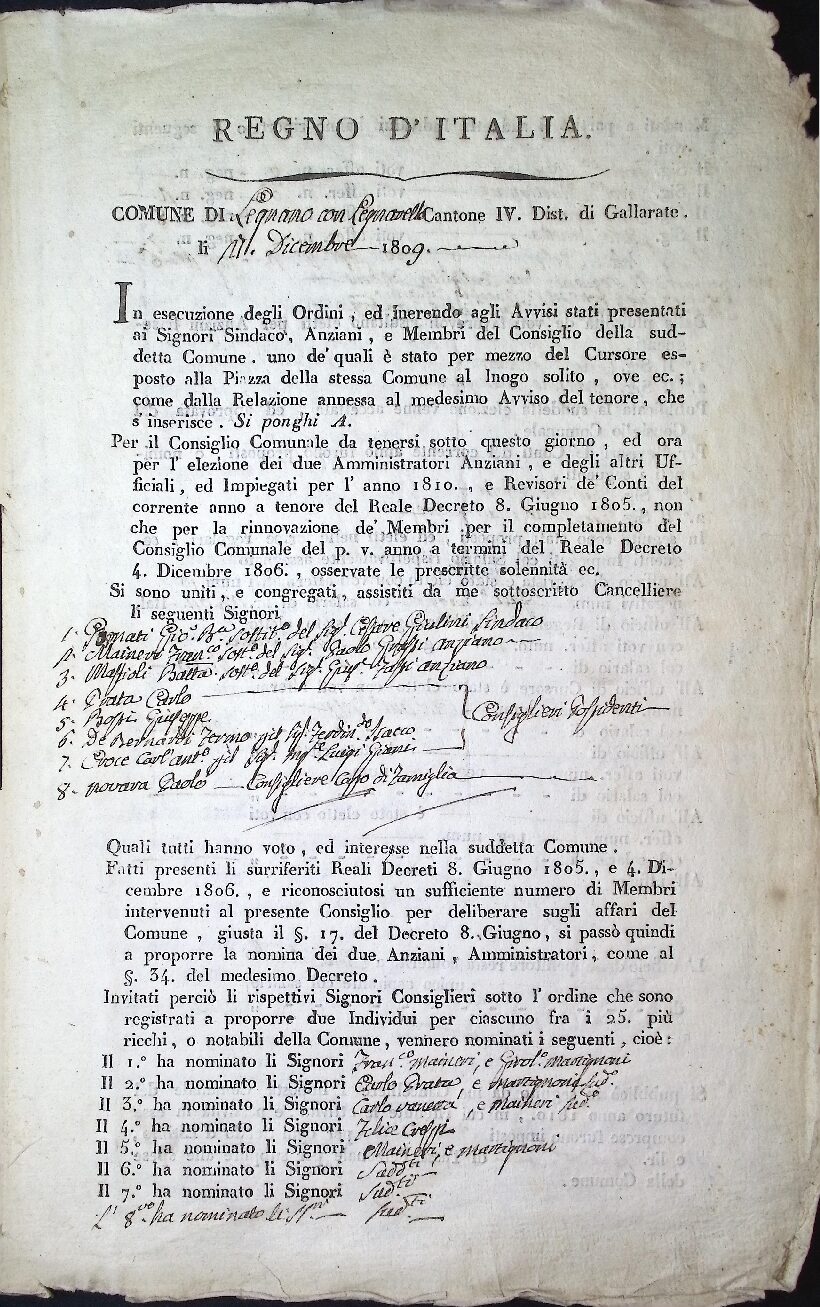 REGNO D'ITALIA.
COMUNE DI Legnano con Legnanello Cantone IV. Dist. di Gallarate.
li 11. Dicembre 1809.
In esecuzione degli Ordini, ed inerendo agli Avvisi stati presentati
ai Signori Sindaco, Anziani, e Membri del Consiglio della sud-
detta Comune. uno de' quali è stato per mezzo del Cursore es-
posto alla Piazza della stessa Comune al luogo solito, ove ec.;
come dalla Relazione annessa al medesimo Avviso del tenore, che
s'inserisce. Si ponghi A.
Per il Consiglio Comunale da tenersi sotto questo giorno, ed ora
per l'elezione dei due Amministratori Anziani, e degli altri Uf-
ficiali, ed Impiegati per l'anno 1810., e Revisori de' Conti del
corrente anno a tenore del Reale Decreto 8. Giugno 1805., non
che per la rinnovazione de' Membri per il completamento del
Consiglio Comunale del p. v. anno a termini del Reale Decreto
4. Dicembre 1806., osservate le prescritte solennità ec.
Si sono uniti, e congregati, assistiti da me sottoscritto Cancelliere
li seguenti Signori
1. Gio. Bta. sostito. del Sigr. Cesare Giulini Sindaco
2. Maineri Franco. sosto. del Sigr. Paolo Grassi anziano
3. Batta. sosto. del Sigr. Giuse. anziano
4. Prata Carlo
5. Bossi Giuseppe
6. De Bernardi Fermo pil Sigr. Ferdindo. Sacco
7. Croce Carl'anto. pil Sigr. Luigi
Consiglieri Possidenti
8. Novara Paolo Consigliere Capo di Famiglia
Quali tutti hanno voto, ed interesse nella suddetta Comune.
Fatti presenti li surriferiti Reali Decreti 8. Giugno 1805., e 4. Di-
cembre 1806., e riconosciutosi un sufficiente numero di Membri
intervenuti al presente Consiglio per deliberare sugli affari del
Comune, giusta il §. 17. del Decreto 8. Giugno, si passò quindi
a proporre la nomina dei due Anziani, Amministratori, come al
§. 34. del medesimo Decreto.
Invitati perciò li rispettivi Signori Consiglieri sotto l'ordine che sono
registrati a proporre due Individui per ciascuno fra i 25. più
ricchi, o notabili della Comune, vennero nominati i seguenti, cioè:
Il 1.° ha nominato li Signori Franco. Maineri, e Girolo. Martignoni
Il 2.° ha nominato li Signori Carlo Prata, e Martignoni sudo.
Il 3.° ha nominato li Signori Carlo, e Maineri sudo.
Il 4.° ha nominato li Signori Felice Crespi
Il 5.° ha nominato li Signori Maineri, e Martignoni
Il 6.° ha nominato li Signori Saddti.
Il 7.° ha nominato li Signori Sudti.
L' 8vo ha nominato li Sigri Sudti.